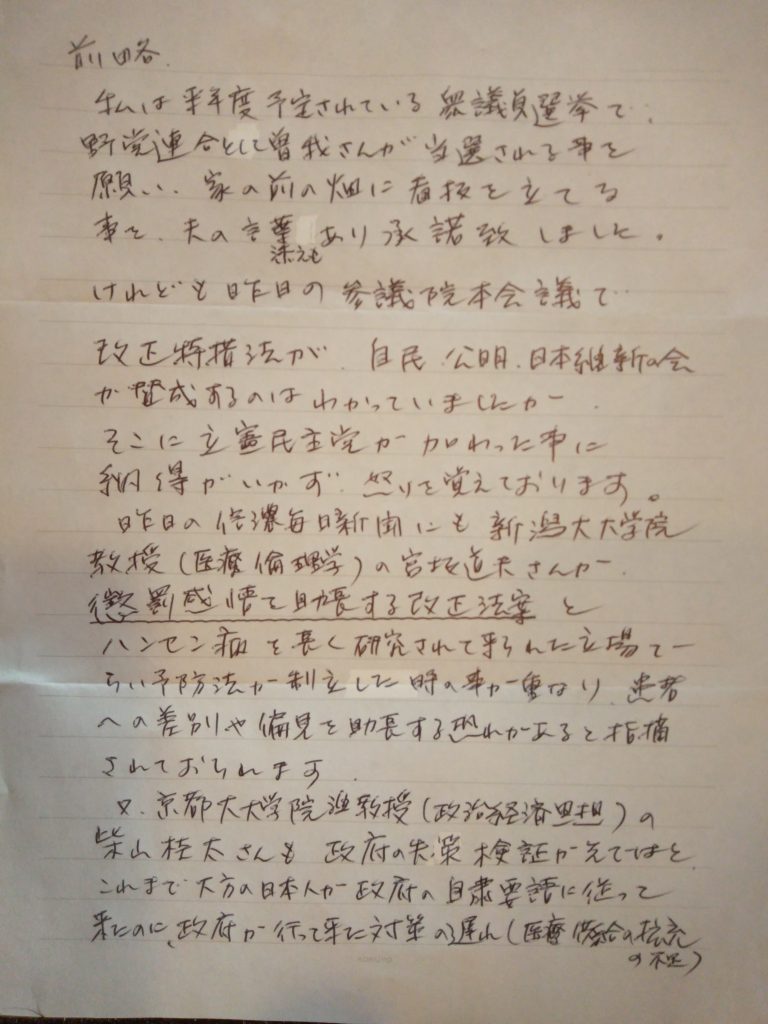 前略
私は来年度予定されている衆議員選挙で、
野党連合として曽我さんが当選される事を
願い、家の前の畑に看板を立てる
事を、夫の言葉あり承諾致しました。
添えも
けれども昨日の参議院本会議で
改正特措法が、自民、公明、日本維新の会
が賛成するのはわかっていましたが、
そこに立憲民主党が加わった事に
納得がいかず、怒りを覚えております。
昨日の信濃毎日新聞にも新潟大大学院
教授(医療倫理学)の宮坂道夫さんが、
懲罰感情を助長する改正法案と
ハンセン病を長く研究されて来られた立場で
らい予防法が制立した時の事が重なり、患者
への差別や偏見を助長する恐れがあると指摘
されておられます。
又、京都大大学院准教授(政治経済思想)の
柴山桂太さんも政府の失策検証が先ではと、
これまで大方の日本人が政府の自粛要請に従って
来たのに、政府が行って来た対策の遅れ(医療 の拡充
の不足)
KOKUYO